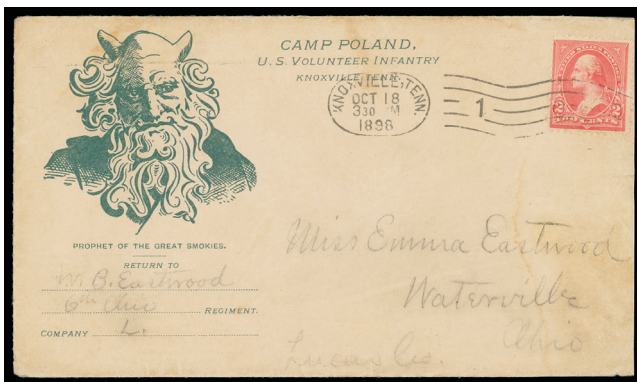 CAMP POLAND,
U.S. VOLUNTEER INFANTRY
KNOXVILLE, TENN.
KNOXVILLE, TENN.
OCT 18
330 M
1898
1
2 TWO CENTS 2
PROPHET OF THE GREAT SMOKIES.
RETURN TO
W. B. Eastwood
6th Ohio REGIMENT.
COMPANY L.
Miss Emma Eastwood
Waterville
Ohio
Lucas Co.